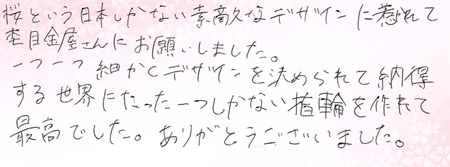 桜という日本しかない素敵なデザインに惹れて
杢目金屋さんにお願いしました。
一つ一つ細かくデザインを決められて納得
する世界にたった一つしかない指輪を作れて
最高でした。ありがとうございました。